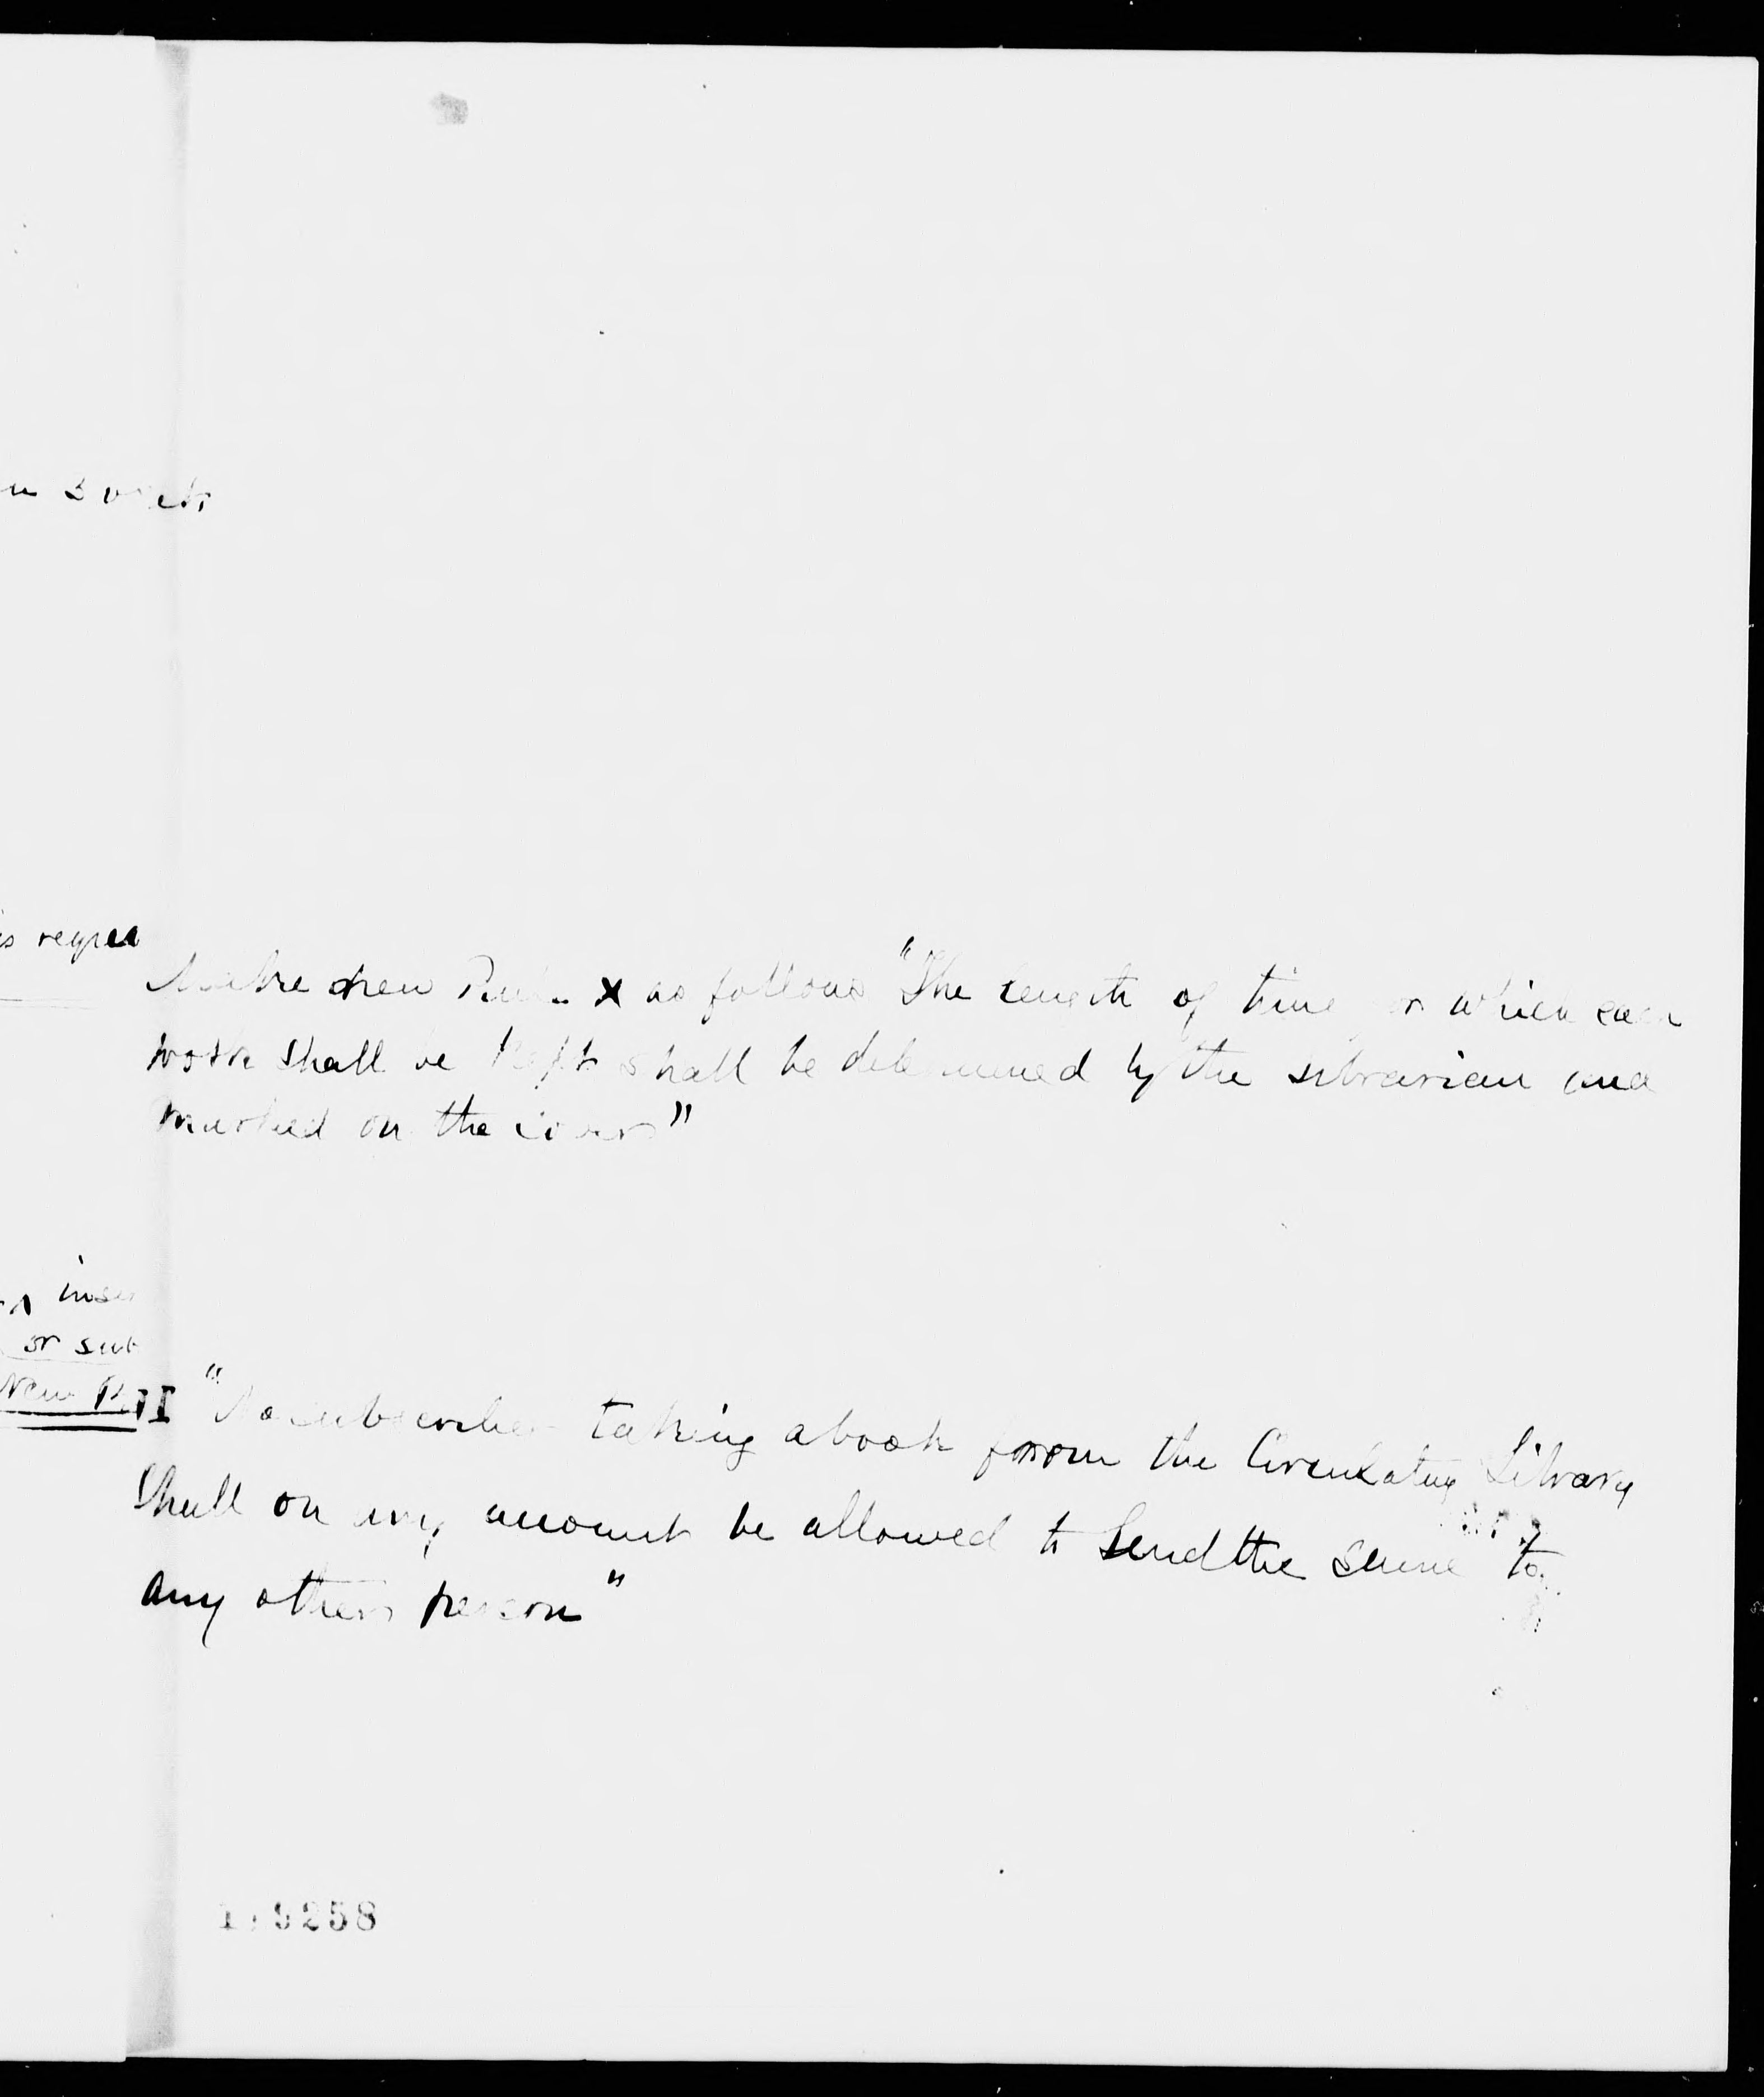 2 weeks
Make new Rule X as follows "The length of time for which each
work shall be kept shall be determined by the librarian and
marked on the covers"
or sub
New R
II "No subscriber taking a book from the Circulating Library
Shall on any account be allowed to Lend the same to
any other person"